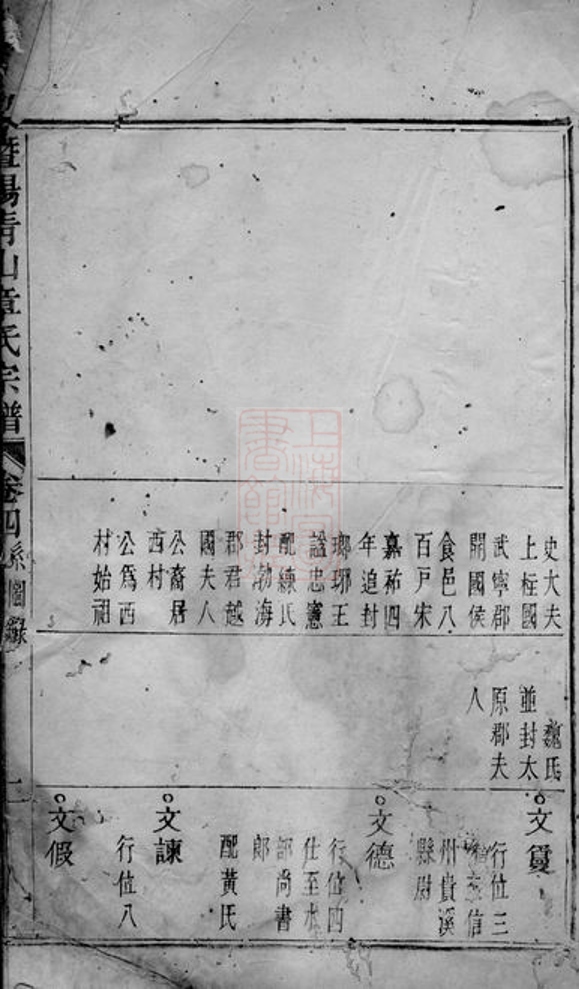 暨陽青山章氏宗譜
卷四
系圖錄
史大夫
上柱國
武寧郡
開國侯
食邑八
百戸宋
嘉祐四
年追封
瑯琊王
諡忠憲
配練氏
封渤海
郡君越
國夫人
公裔居
西村
公爲西
村始祖
魏氏
並封太
原郡夫
人
文
行位三
信
州貴溪
縣尉
文德
行位四
仕至水
部尚書
郎
配黃氏
文諫
行位八
文假
上海
書館